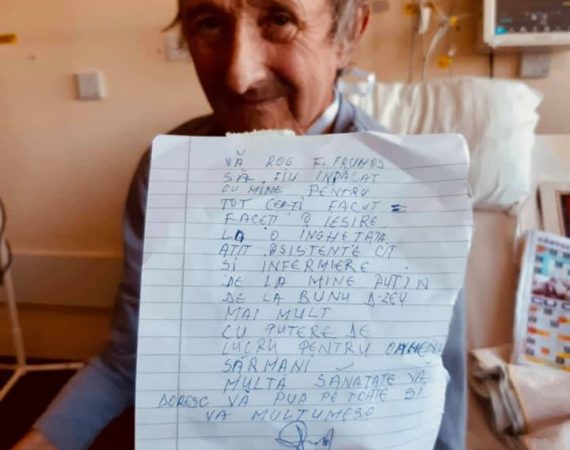 VĂ ROG F. FRUMOS
SĂ FIU INPACAT
CU MINE PENTRU
TOT CEAȚI FACUT =
FACEȚI O IESIRE
LA O INGHETATA
ATIT ASISTENTE CIT
SI INFERMIERE
DE LA MINE PUTIN
DE LA BUNU D-ZEU
MAI MULT
CU PUTERE DE
LUCRU PENTRU OAMENII
SĂRMANI
MULTA SĂNATATE VĂ
DORESC VĂ PUP PE TOATE SI
VA MULTUMESC